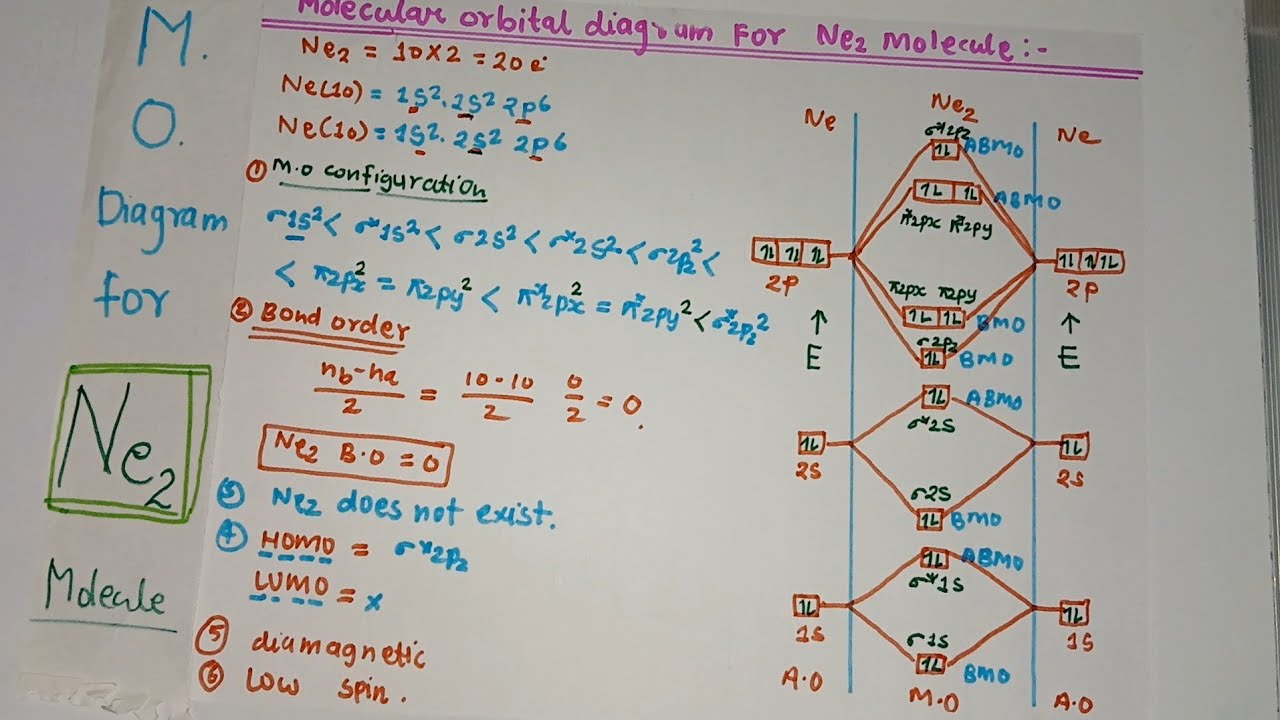 Molecular orbital diagram For Ne₂ Molecule:-
M.
O.
Diagram
for
Ne₂
Molecule
Ne₂ = 10×2 = 20 e⁻
Ne(10) = 1S². 2S² 2P⁶
Ne(10) = 1S². 2S² 2P⁶
① M.O configuration
σ1S² < σ*1S² < σ2S² < σ*2S² < σ2Pz² <
< π2Px² = π2Py² < π*2Px² = π*2Py² < σ*2Pz²
② Bond order
nb-na/2 = 10-10/2 0/2 = 0.
Ne₂ B.O = 0
③ Ne₂ does not exist.
④ HOMO = σ*2Pz
LUMO = x
⑤ diamagnetic
⑥ Low spin.
Ne Ne₂ Ne
σ*2Pz
1L ABMO
1L 1L ABMO
π*2px π*2py
1L 1L 1L 1L 1L 1L
2P 2P
π2px π2py
1L 1L BMO
↑ ↑
E E
σ2Pz
1L BMO
1L ABMO
σ*2S
1L 1L
2S 2S
σ2S
1L BMO
1L ABMO
σ*1S
1L 1L
1S 1S
σ1S
1L BMO
A.O M.O A.O